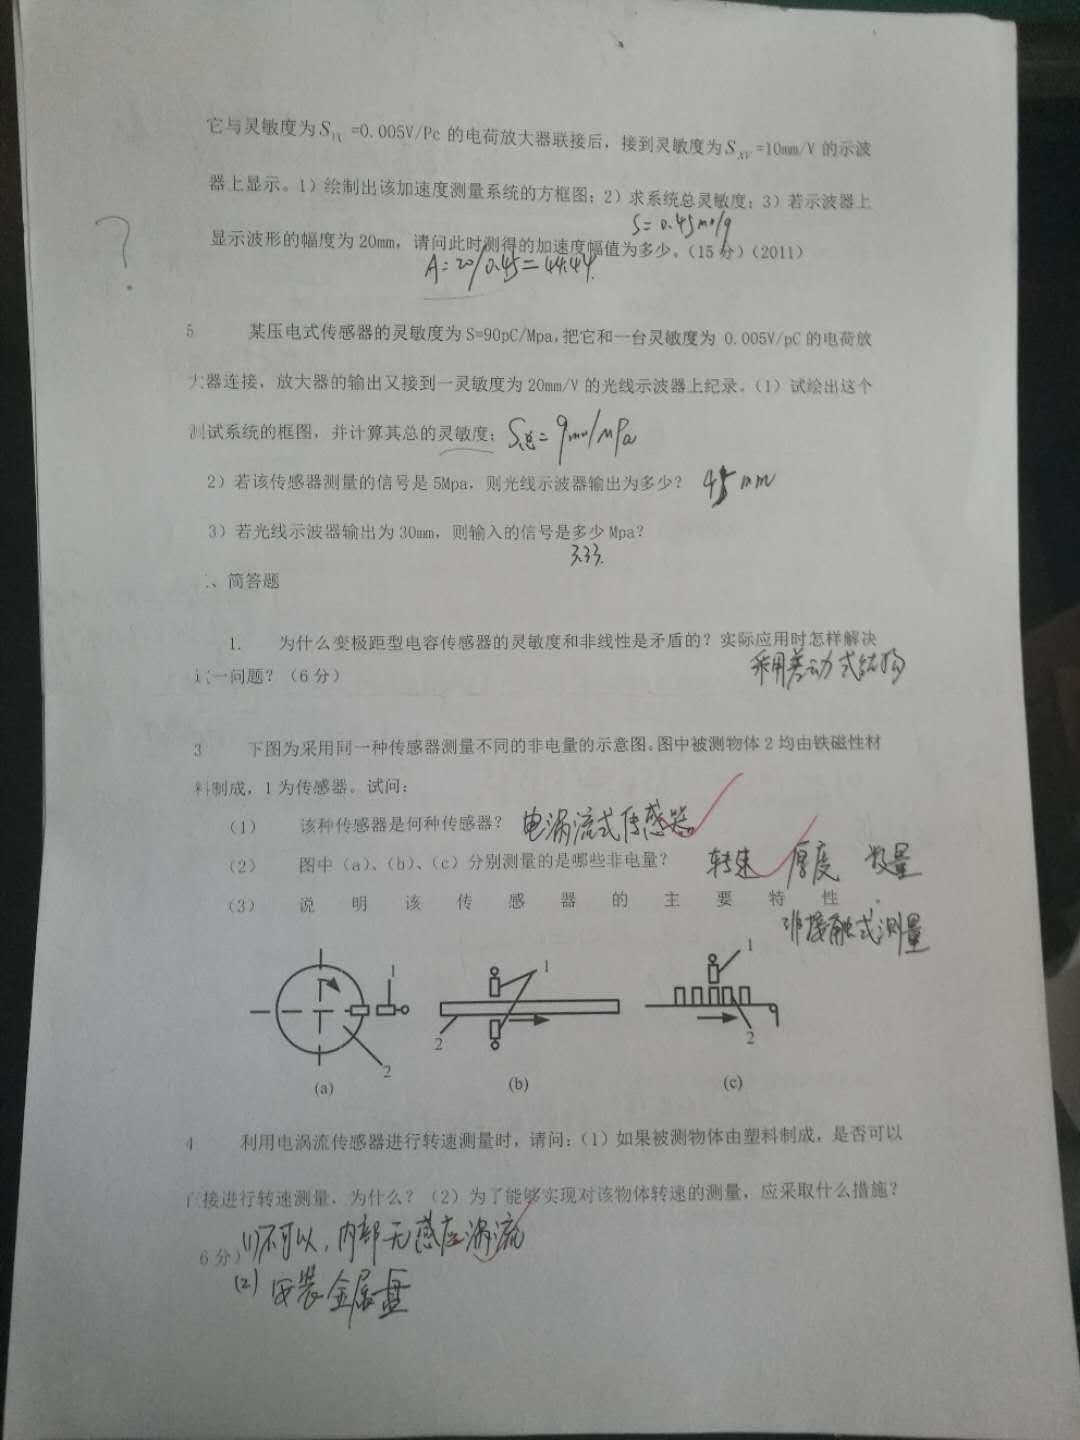 它与灵敏度为 =0.005V/Pc 的电荷放大器联接后，接到灵敏度为 =10mm/V 的示波
器上显示。1）绘制出该加速度测量系统的方框图；2）求系统总灵敏度；3）若示波器上
S=0.45mm/g
显示波形的幅度为20mm，请问此时测得的加速度幅值为多少。（15分）（2011）
A=20/0.45=44.44.
?
5 某压电式传感器的灵敏度为 S=90pC/Mpa,把它和一台灵敏度为 0.005V/pC 的电荷放
大器连接，放大器的输出又接到一灵敏度为20mm/V 的光线示波器上纪录。（1）试绘出这个
测试系统的框图，并计算其总的灵敏度； S总=9mm/MPa
2）若该传感器测量的信号是5Mpa，则光线示波器输出为多少？ 45mm
3）若光线示波器输出为30mm，则输入的信号是多少Mpa？
3.33.
、简答题
1. 为什么变极距型电容传感器的灵敏度和非线性是矛盾的？实际应用时怎样解决
采用差动式结构
一问题？（6分）
3 下图为采用同一种传感器测量不同的非电量的示意图。图中被测物体2均由铁磁性材
料制成，1为传感器。试问：
（1） 该种传感器是何种传感器？ 电涡流式传感器
（2） 图中（a）、（b）、（c）分别测量的是哪些非电量？ 转速 厚度 数量
（3） 说明该传感器的主要特性。
非接触式测量
1 2 (a)
1 2 (b)
1 2 (c)
4 利用电涡流传感器进行转速测量时，请问：（1）如果被测物体由塑料制成，是否可以
接进行转速测量，为什么？（2）为了能够实现对该物体转速的测量，应采取什么措施？
6分） (1)不可以，内部无感应涡流
(2) 安装金属盘